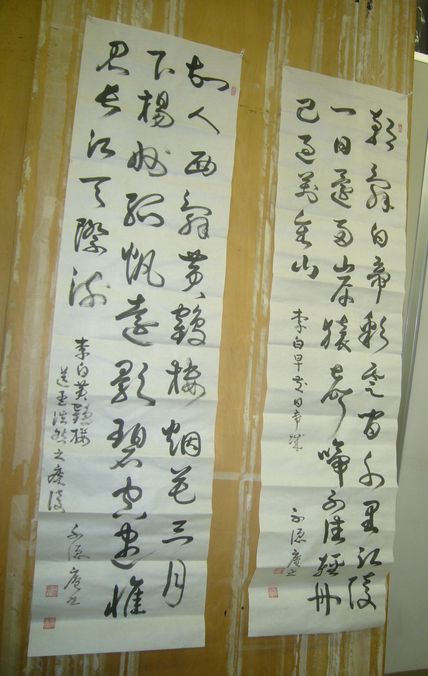 朝辭白帝彩雲間千里江陵
一日還兩岸猿聲啼不住輕舟
已過萬重山
李白早發白帝城
故人西辭黃鶴樓烟花三月
下楊州孤帆遠影碧空盡惟
見長江天際流
李白黃鶴樓
送孟浩然之廣陵